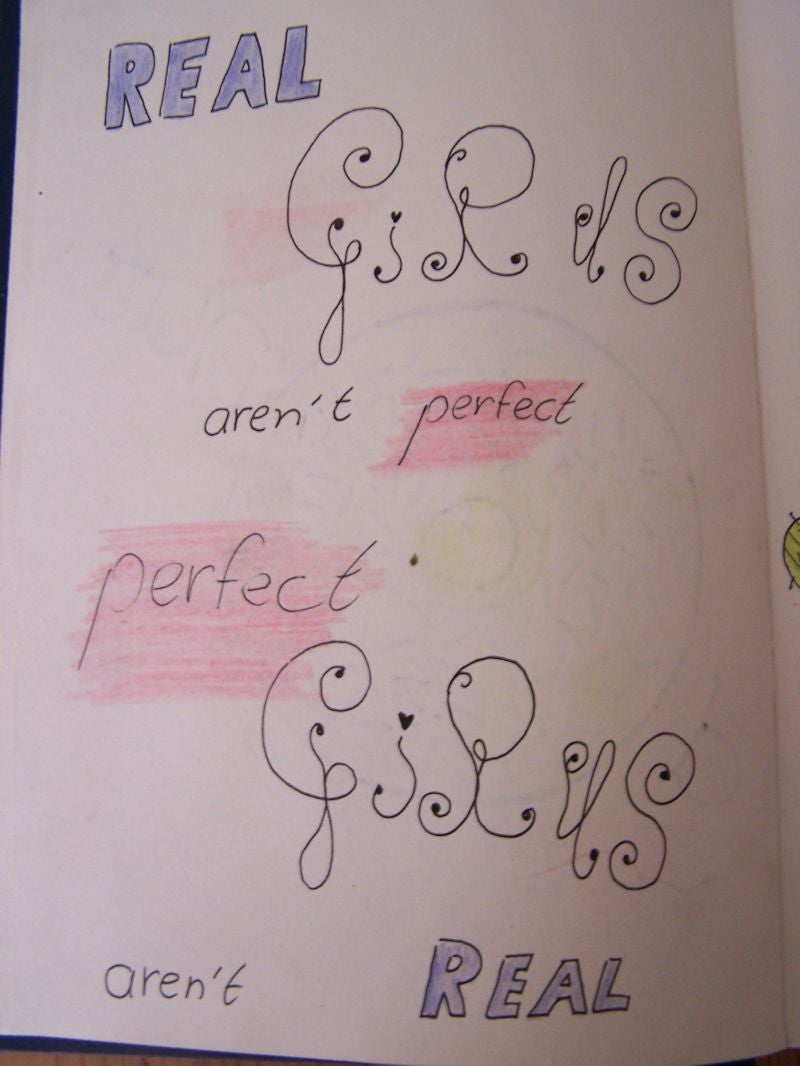 REAL
GiRlS
aren't perfect
perfect
GiRlS
aren't REAL